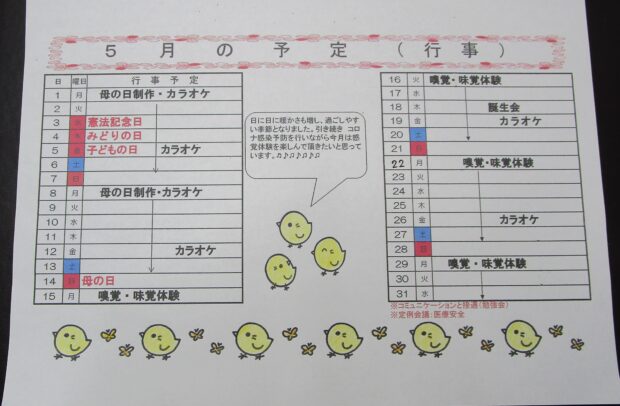 5月の予定(行事)
日 曜日 行事予定
1 月 母の日制作・カラオケ
2 火
3 水 憲法記念日
4 木 みどりの日
5 金 子どもの日 カラオケ
6 土
7 日
8 月 母の日制作・カラオケ
9 火
10 水
11 木
12 金 カラオケ
13 土
14 日 母の日
15 月 嗅覚・味覚体験
日に日に暖かさも増し、過ごしやす
い季節となりました。引き続き コロ
ナ感染予防を行いながら今月は感
覚体験を楽しんで頂きたいと思って
います。♬♪♫♪♫♪♫
16 火 嗅覚・味覚体験
17 水
18 木 誕生会
19 金 カラオケ
20 土
21 日
22 月 嗅覚・味覚体験
23 火
24 水
25 木
26 金 カラオケ
27 土
28 日
29 月 嗅覚・味覚体験
30 火
31 水
※コミュニケーションと接遇(勉強会)
※定例会議:医療安全